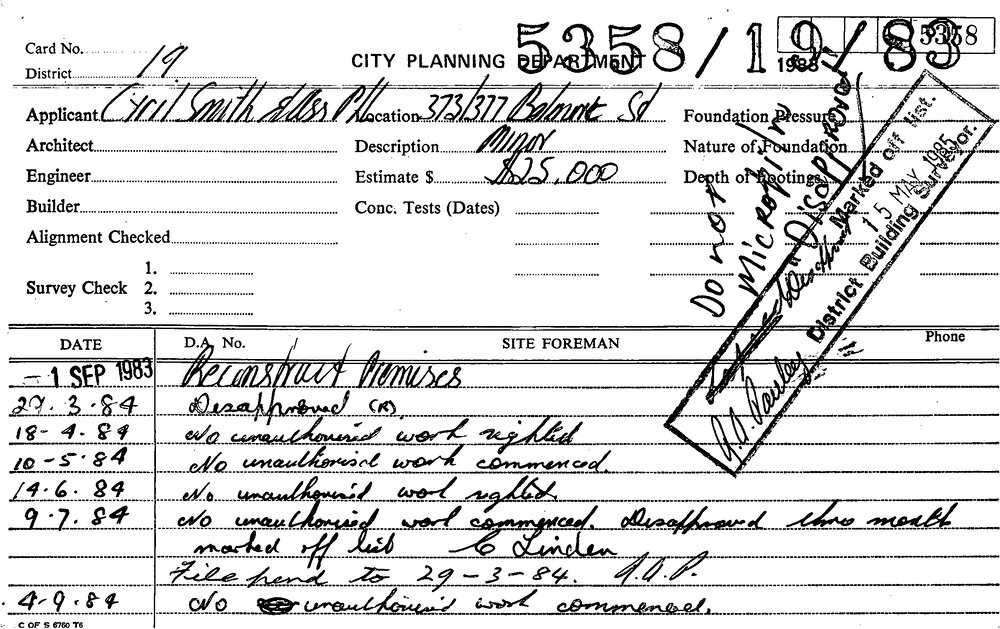 5358/19/83
5358
Card No. 19
1983
District
CITY PLANNING DEPARTMENT
Applicant Cyril Smith & Ass P/L Location 373/377 Belmont Sd Foundation Pressure
Architect Description Minor Nature of Foundation
Engineer Estimate $ $25,000 Depth of Footings
Builder Conc. Tests (Dates)
Alignment Checked
1.
Survey Check 2.
3.
DO NOT
MICROFILM
"DISAPPROVED"
Marked off list.
15 MAY 1985
District Building Surveyor.
DATE D.A. No. SITE FOREMAN Phone
-1 SEP 1983 Reconstruct Premises
27.3.84 Disapproved (K).
18-4.84 No unauthorised work sighted
10-5.84 No unauthorised work commenced.
14.6.84 No unauthorised work sighted.
9.7.84 No unauthorised work commenced. Disapproved this month
marked off list C Linden
File pend to 29-3-84. J.A.P.
4-9.84 No unauthorised work commenced.
C OF S 6760 T6